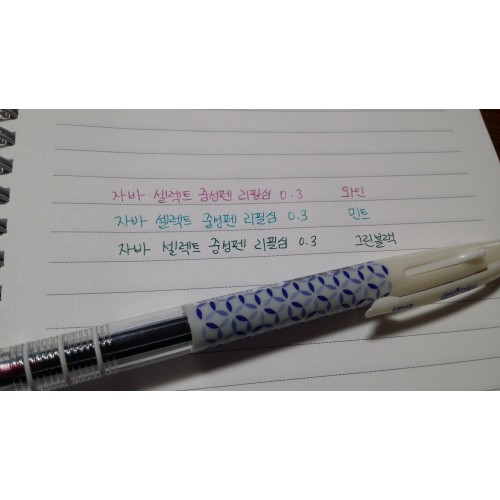 자바 셀렉트 중성펜 리필심 0.3 와인
자바 셀렉트 중성펜 리필심 0.3 민트
자바 셀렉트 중성펜 리필심 0.3 그린블랙